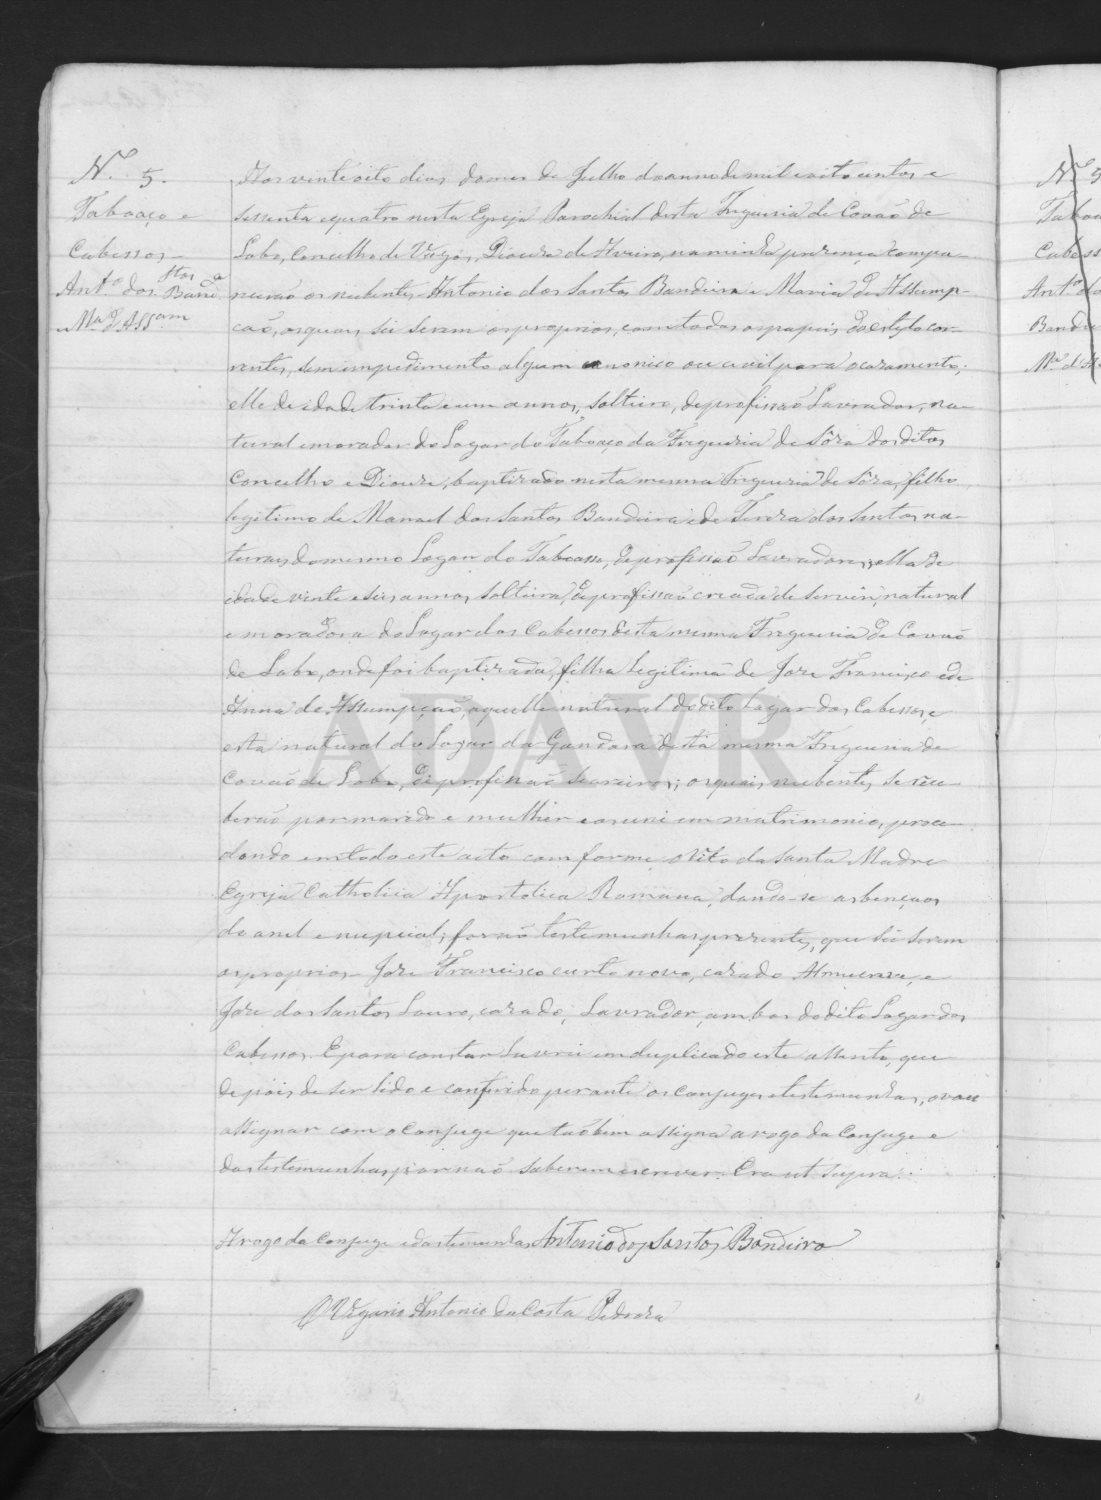 Nº 5.
Taboaço e
Cabessos
Antº dos Stos Bandrª
Mª d'Assam
Aos vinte oito dias do mes de Julho do anno de mil e oito centos e
sessenta e quatro nesta Egreja Parochial desta Freguesia de Covaõ de
Lobo, Concelho de Vagos, Diocese de Aveiro, na minha presença compa-
receraõ os nubentes Antonio dos Santos Bandeira e Maria de Assump-
çaõ, os quaes sei serem os proprios, com todos os papeis do estylo cor-
rentes, sem impedimento algum canonico ou civil para o casamento;
elle de idade trinta e um annos, solteiro, de profissaõ Lavrador, na-
tural e morador do Logar do Taboaço da Freguesia de Sôza dos ditos
Concelho e Diocese, baptizado nesta mesma Freguesia de Sôza, filho
legitimo de Manoel dos Santos Bandeira e de Tereza dos Santos, na-
turaes do mesmo Logar do Taboasso, de profissaõ Lavradores; ella de
idade vinte e seis annos, solteira, de profissaõ creada de servir, natural
e moradora do Logar dos Cabessos desta mesma Freguesia de Covaõ
de Lobo, onde foi baptizada, filha Legitima de Joze Francisco e de
Anna de Assumpçaõ, aquelle natural do dito Logar dos Cabessos, e
esta natural do Logar da Gandara desta mesma Freguesia de
Covaõ de Lobo, de profissaõ Seareiros; os quaes nubentes se rece-
beraõ por marido e mulher e os uni em matrimonio, proce-
dendo em todo este acto comforme o rito da Santa Madre
Egreja Catholica Apostolica Romana, dando-se as bençaos
do anel e nupcial; foraõ testemunhas prezentes, que sei serem
os proprios Joze Francisco curto novo, cazado, e
Joze dos Santos Louro, cazado, Lavrador, ambos do dito Logar dos
Cabessos. E para constar Lavrei em duplicado este assento, que
depois de ser lido e conferido perante os Conjuges e testemunhas, o vou
assignar com o Conjuge que taõbem assigna a rogo da Conjuge e
das testemunhas por naõ saberem escrever. Era ut supra.
A rogo da Conjuge e das testemunhas Antonio dos Santos Bandeira
O Vigario Antonio da Costa Pedroza
ADAVR
Nº 5
Tabo
Cabess
Antº do
Bande
Mª d'As